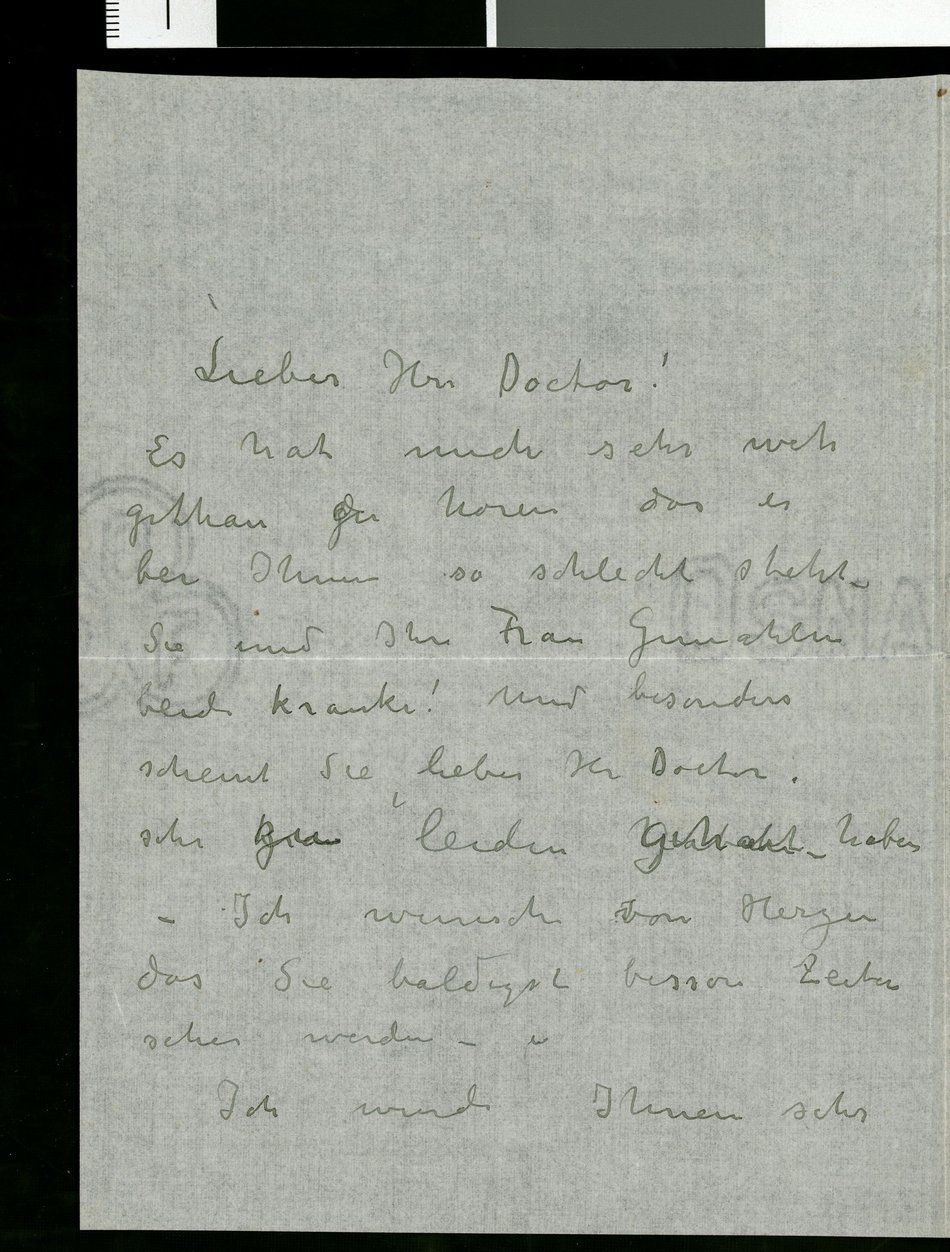 Lieber Herr Doctor!
Es hat mich sehr weh
gethan zu horen das es
bei Ihnen so schlecht steht –
Sie und Ihre Frau Gemahlin
beide kranke! Und besonders
scheint Sie lieber Hr Doctor,
sehr leiden gehabt – haben
– Ich wunsche von Herzen
das Sie baldigst besser Zeiten
sehen werden –
Ich wurde Ihnen sehr